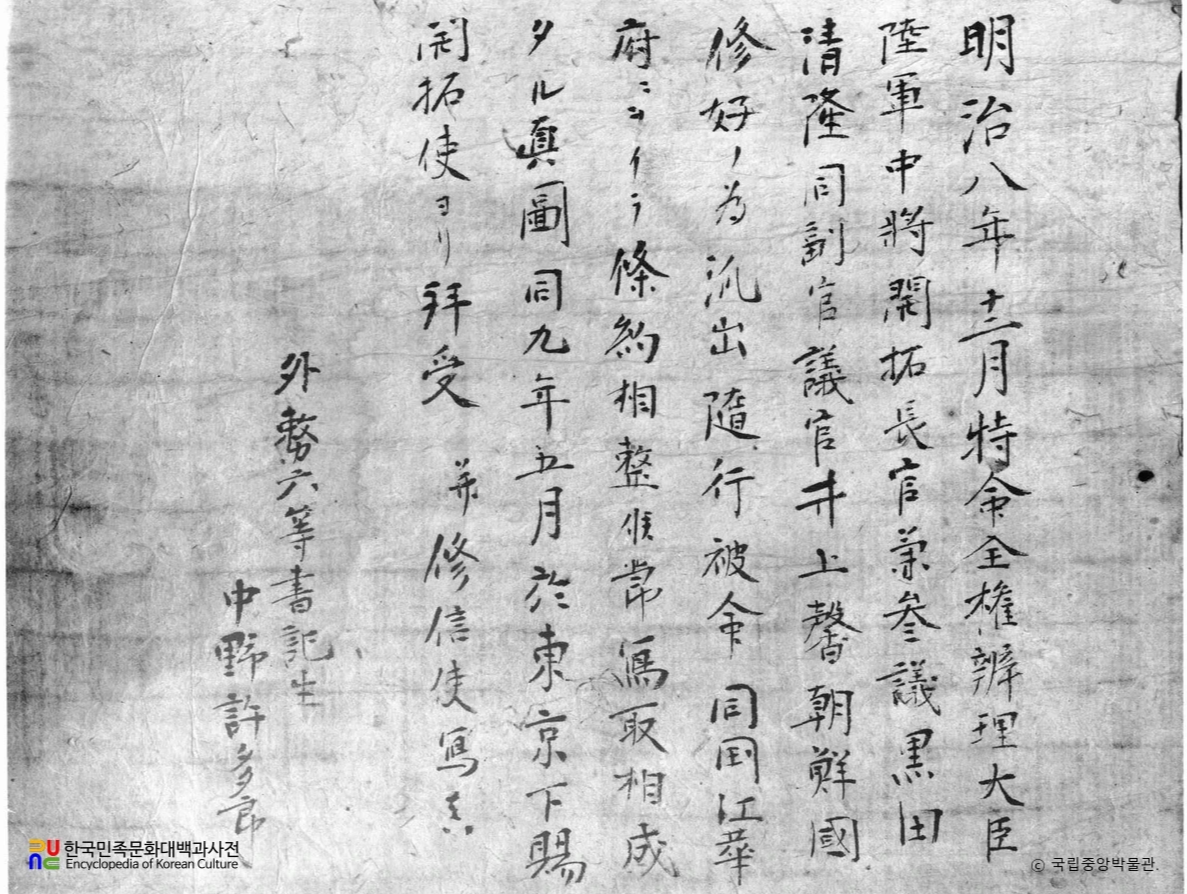 明治八年十二月特命全権辨理大臣
陸軍中將開拓長官兼参議黒田
清隆同副官議官井上馨朝鮮國
修好ノ為汎出隨行被命同国江華
府ニヲイテ條約相整候常寫取相成
タル真圖同九年五月於東京下賜
開拓使ヨリ拜受 并修信使寫真
外務六等書記生
中野許多良
한국민족문화대백과사전
Encyclopedia of Korean Culture
© 국립중앙박물관.